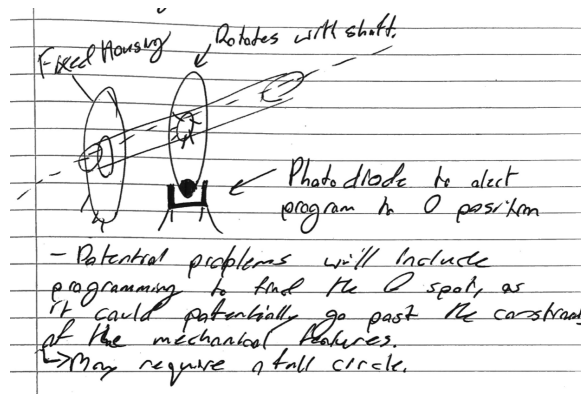 Fixed Housing
Rotates with shaft.
Photo diode to alert
program to 0 position
- Potential problems will include
programming to find the 0 spot, as
it could potentially go past the constraints
of the mechanical features.
↳ May require a full circle.